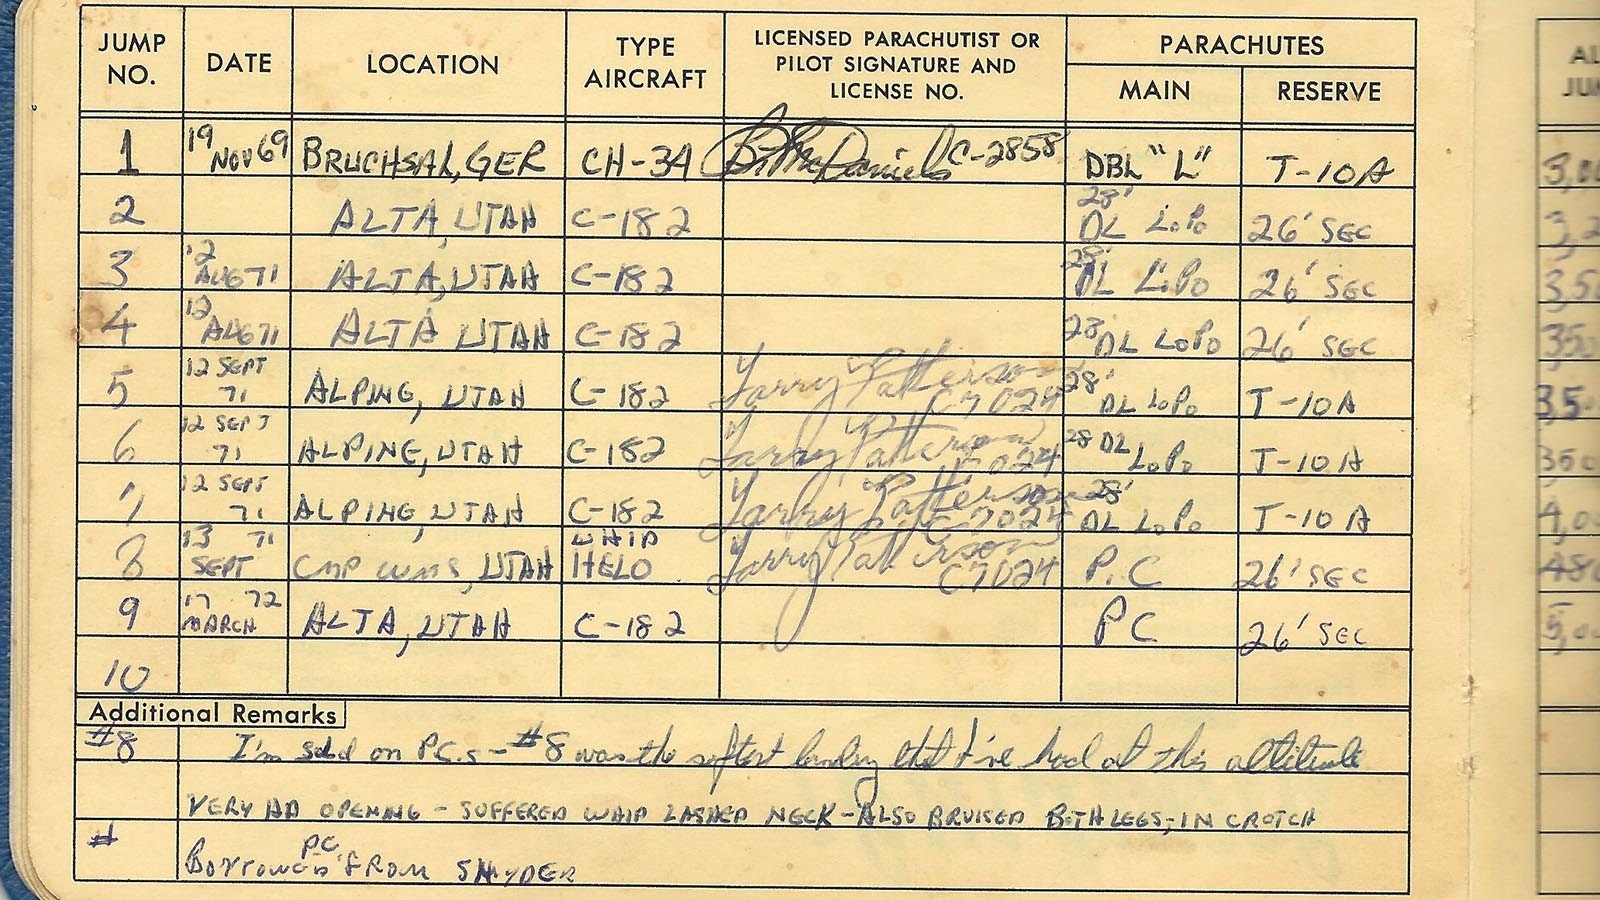 JUMP NO. DATE LOCATION TYPE AIRCRAFT LICENSED PARACHUTIST OR PILOT SIGNATURE AND LICENSE NO. PARACHUTES
MAIN RESERVE
1 19 NOV 69 BRUCHSAL, GER CH-34 Bill McDaniels C-2858 DBL "L" T-10A
2 ALTA, UTAH C-182 28' DL LoPo 26' SEC
3 12 AUG 71 ALTA, UTAH C-182 28' DL LoPo 26' SEC
4 12 AUG 71 ALTA UTAH C-182 28' DL LoPo 26' SEC
5 12 SEPT 71 ALPING, UTAH C-182 Larry Patterson C7024 28' DL LoPo T-10A
6 12 SEPT 71 ALPINE, UTAH C-182 Larry Patterson C7024 28 DL LoPo T-10A
7 12 SEPT 71 ALPING, UTAH C-182 Larry Patterson C7024 28' DL LoPo T-10A
8 13 71 SEPT CMP WMS, UTAH HELO Larry Patterson C7024 P.C 26' SEC
9 17 72 MARCH ALTA, UTAH C-182 PC 26' SEC
10
Additional Remarks
#8 I'm sold on P.C.s - #8 was the softest landing that I've had at this altitude
VERY OPENING - SUFFERED WHIP LASHED NECK - ALSO BRUISED BOTH LEGS, IN CROTCH
# BORROWED PC FROM SNYDER
AL
JUM
3,00
3,2
3,50
350
35
350
4,00
480
5,00